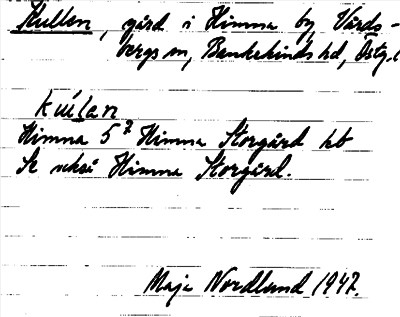 Kullen, gård i Himna by, Vårds-
bergs sn, Bankekinds hd, Östg.l
kúlan
Himna 5² Himna Storgård hb
Se också Himna Storgård.
Maja Nordlund 1947.